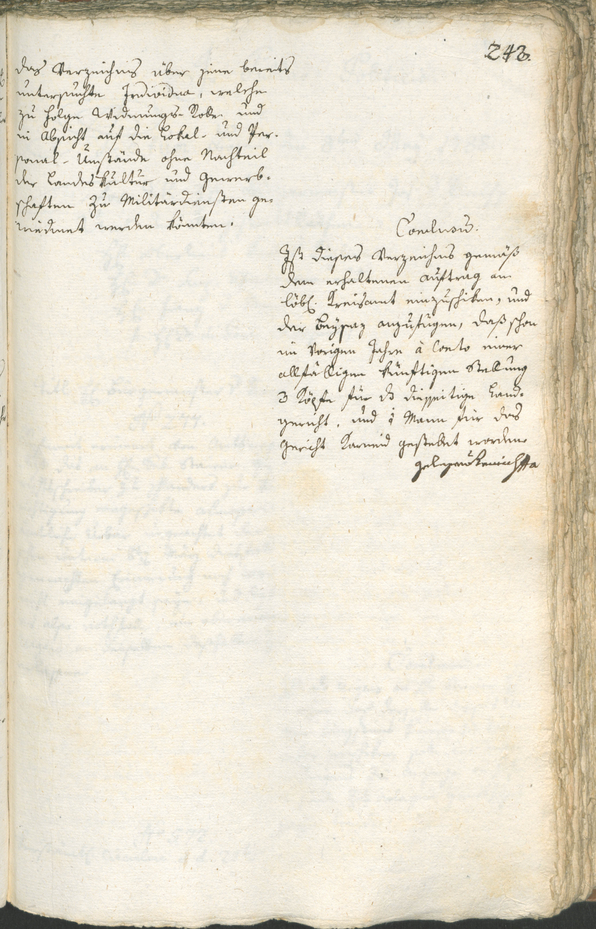 243.
das Verzeichnis über jene bereits
untersuchte Individua, welche
zu folge Widmungs-Rolle und
in Absicht auf die Lokal- und Per-
sonal-Umstände ohne Nachteil
der Landeskultur und Gewerb-
schaften zu Militärdiensten ge-
widmet werden könnten.
Conclusum.
Ist dieses Verzeichnis gemäß
dem erhaltenen Auftrag an
löbl. Kreisamt einzuschiken, und
der Beysaz anzufügen, daß schon
im vorigen Jahre à Conto einer
allfälligen künftigen Stellung
3 Köpfe für das disseitige Land-
gericht, und 1 Mann für das
Gericht Karneid gestellet worden